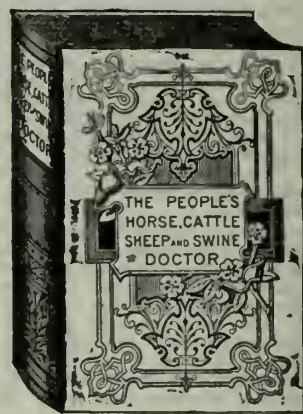 PEOPLE
CATTLE
SWINE
DOCTOR
THE PEOPLE'S
HORSE, CATTLE
SHEEP AND SWINE
DOCTOR